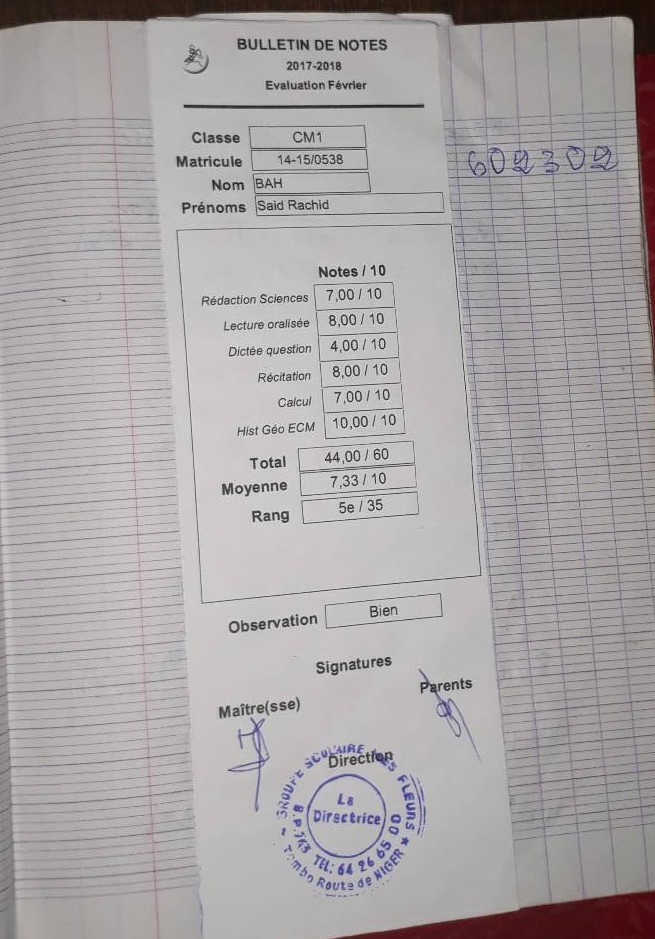 BULLETIN DE NOTES
2017-2018
Evaluation Février
Classe CM1
Matricule 14-15/0538
Nom BAH
Prénoms Said Rachid
602302
Notes / 10
Rédaction Sciences 7,00 / 10
Lecture oralisée 8,00 / 10
Dictée question 4,00 / 10
Récitation 8,00 / 10
Calcul 7,00 / 10
Hist Géo ECM 10,00 / 10
Total 44,00 / 60
Moyenne 7,33 / 10
Rang 5e / 35
Observation Bien
Signatures
Maître(sse) Parents
Direction
GROUPE SCOLAIRE LES FLEURS
La
Directrice
TEL: 64 26 65 00
Tombo Route de NIGER